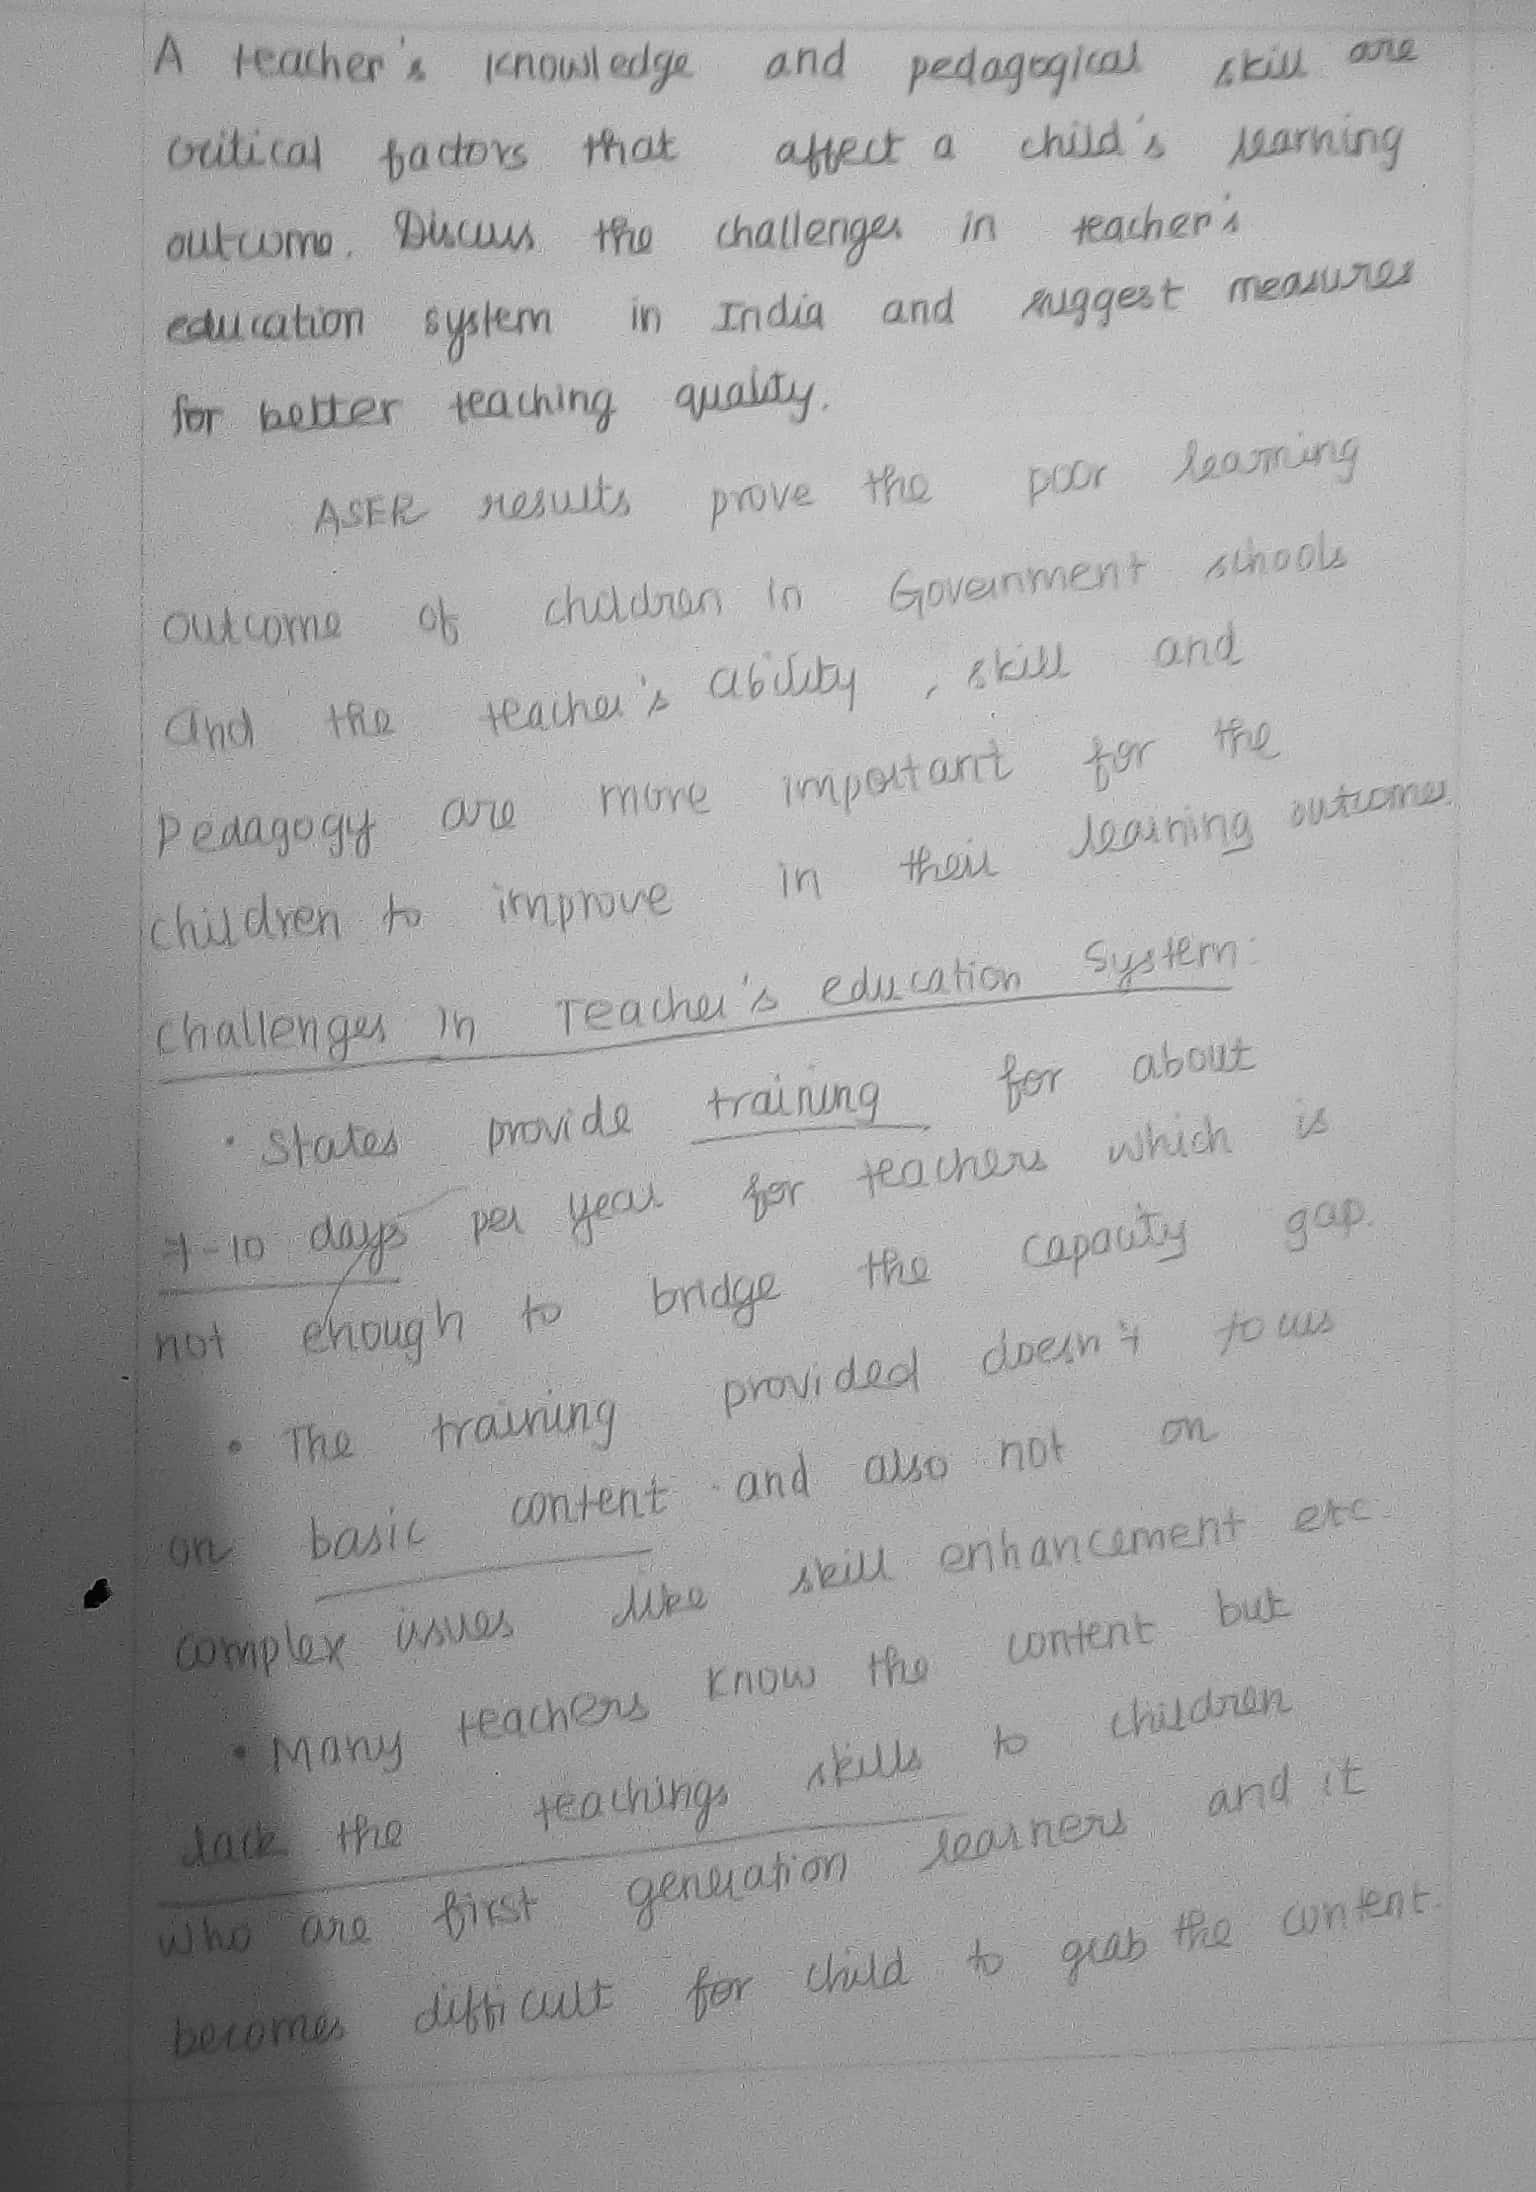 A teacher's knowledge and pedagogical skill are
critical factors that affect a child's learning
outcome. Discuss the challenges in teacher's
education system in India and suggest measures
for better teaching quality.
ASER results prove the poor learning
outcome of children in Government schools
and the teacher's ability, skill and
Pedagogy are more important for the
children to improve in their learning outcomes.
Challenges in Teacher's education System:
• States provide training for about
7-10 days per year for teachers which is
not enough to bridge the capacity gap.
• The training provided doesn't focus
on basic content and also not on
complex issues like skill enhancement etc.
• Many teachers know the content but
lack the teachings skills to children
who are first generation learners and it
becomes difficult for child to grab the content.